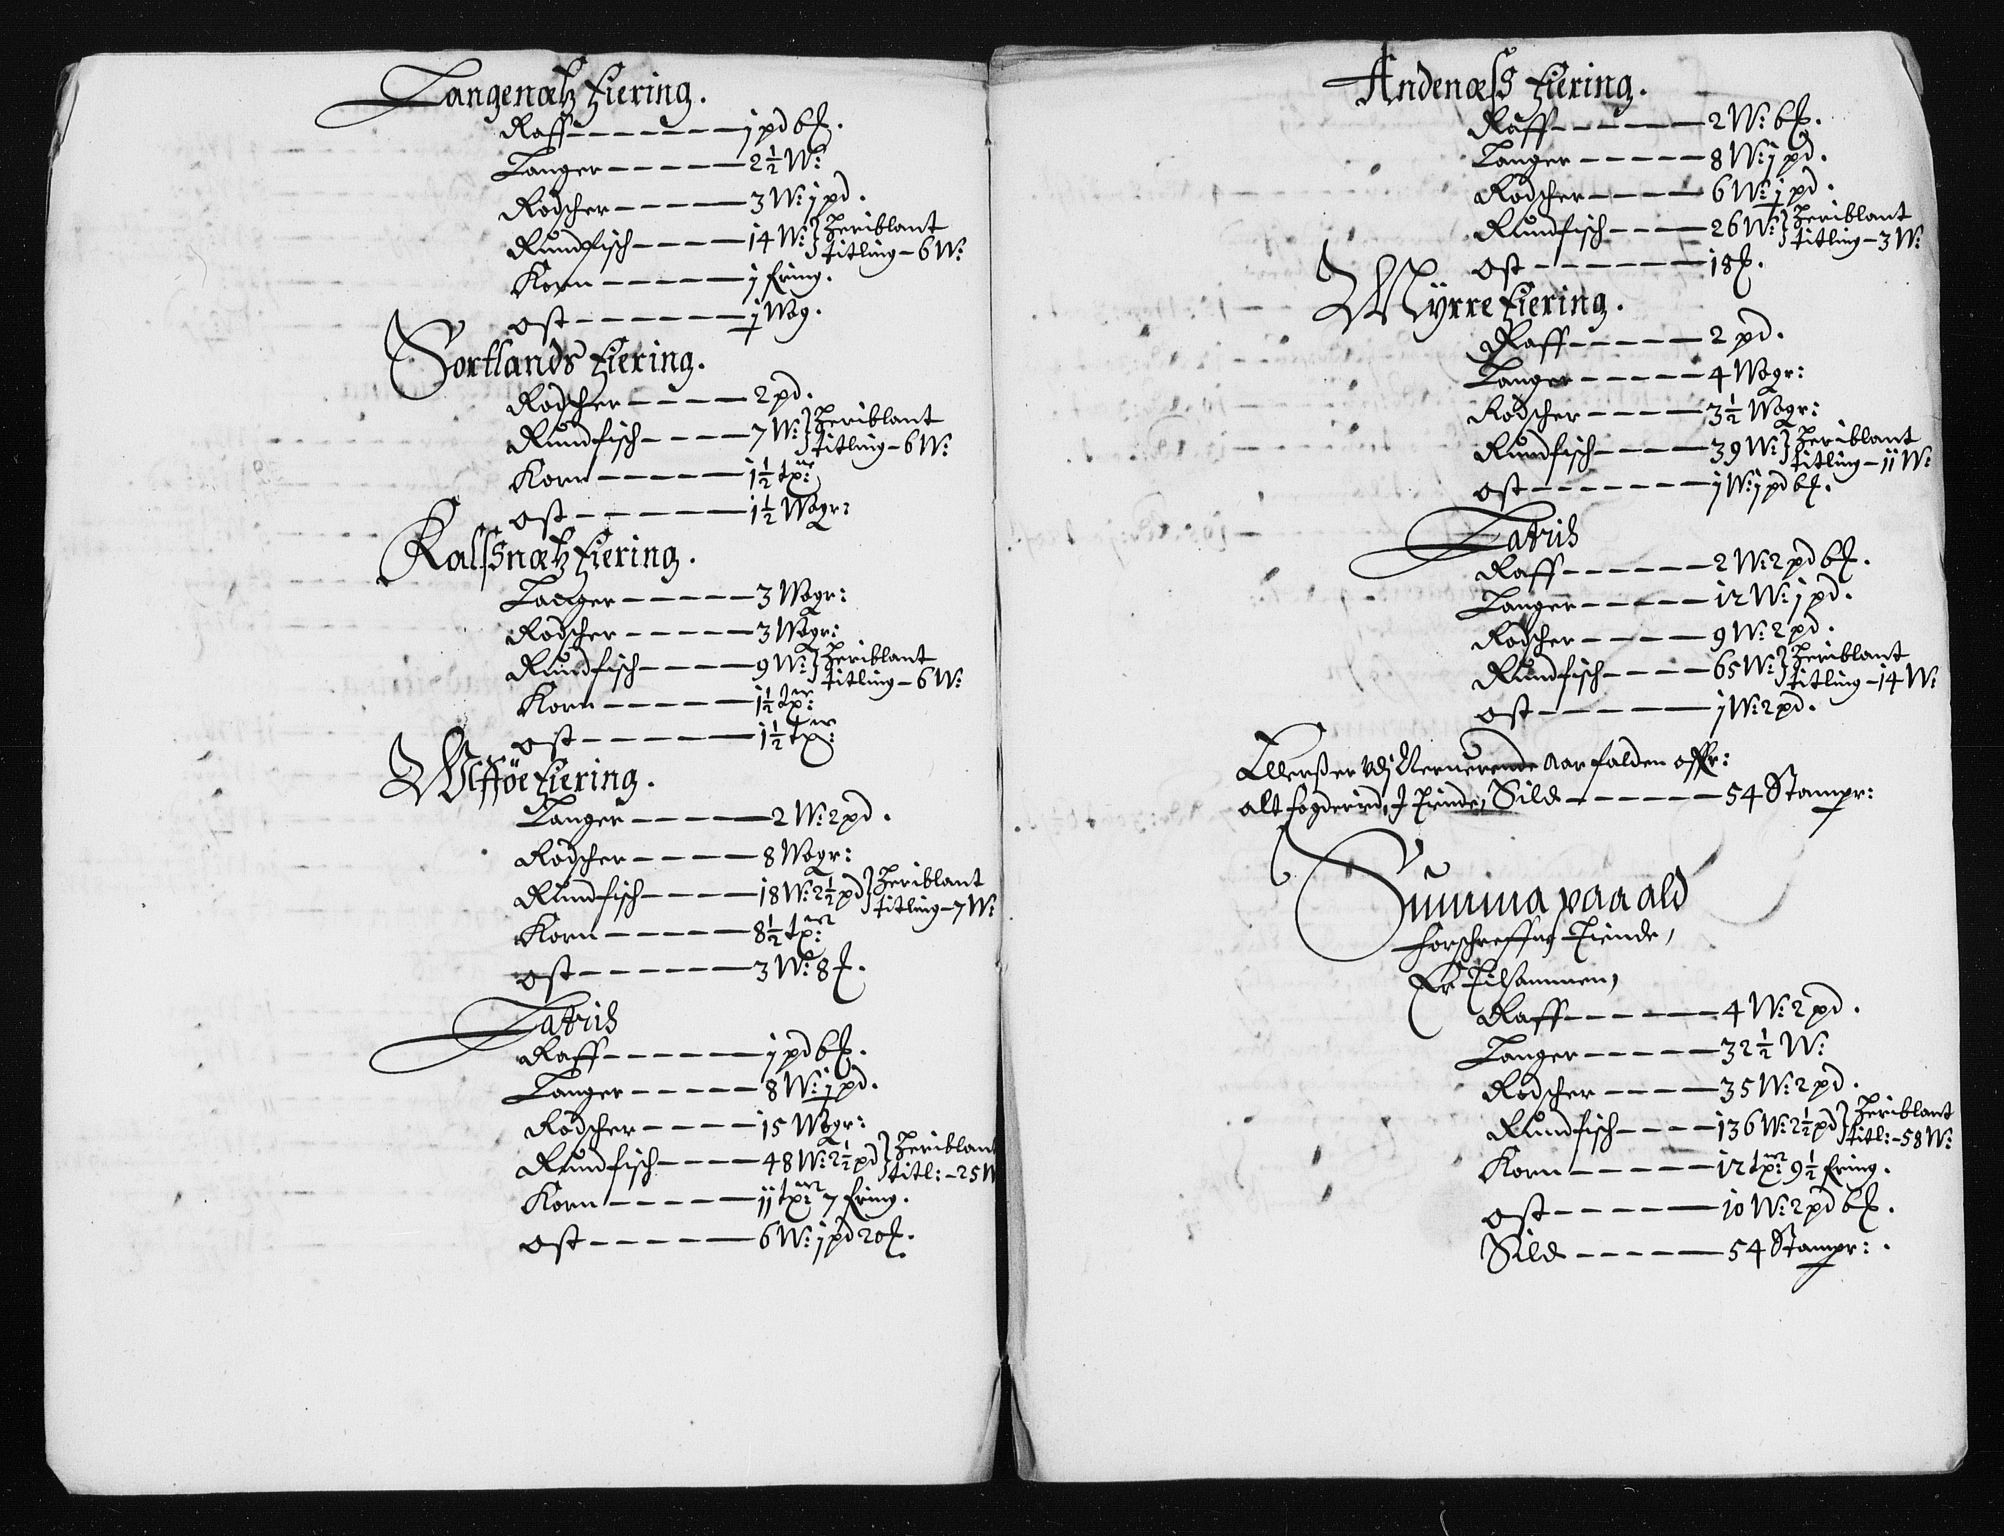 Langenætz Fiering.
Raff - - - - - - - j pd 6 ℔.
Langer - - - - - 2½ W:
Rodscher - - - - - 3 W: j pd.
Rundfisch - - - - 14 W: } Heriblant
titling - 6 W:
Korn - - - - - - j Ering.
Ost - - - - - - - j Wog.
Sortlands Fiering.
Rodscher - - - - - 2 pd.
Rundfisch - - - - 7 W: } Heriblant
titling - 6 W:
Korn - - - - - - 1½ tpr:
Ost - - - - - - - 1½ Wogr:
Kalssnætz Fiering.
Langer - - - - - 3 Wogr:
Rodscher - - - - - 3 Wogr:
Rundfisch - - - - 9 W: } Heriblant
titling - 6 W:
Korn - - - - - - 1½ tpr:
Ost - - - - - - - 1½ tpr:
Ulfföe Fiering.
Langer - - - - - 2 W: 2 pd.
Rodscher - - - - - 8 Wogr:
Rundfisch - - - - 18 W: 2½ pd } Heriblant
titling - 7 W:
Korn - - - - - - 8½ tpr:
Ost - - - - - - - 3 W: 8 ℔.
Latris
Raff - - - - - - - j pd 6 ℔.
Langer - - - - - 8 W: j pd.
Rodscher - - - - - 15 Wogr:
Rundfisch - - - - 48 W: 2½ pd } Heriblant
titl: - 25 W
Korn - - - - - - jj tpr: 7 Ering.
Ost - - - - - - - 6 W: j pd 20 ℔.
Andenæss Fiering.
Raff - - - - - - 2 W: 6 ℔.
Langer - - - - - 8 W: j pd.
Rodscher - - - - 6 W: j pd.
Rundfisch - - - - 26 W: } Heriblant
titling - 3 W:
Ost - - - - - - - 18 ℔.
Myrre Fiering.
Raff - - - - - - 2 pd.
Langer - - - - - 4 Wogr:
Rodscher - - - - 3½ Wogr:
Rundfisch - - - - 39 W: } Heriblant
titling - jj W:
Ost - - - - - - - j W: j pd 6 ℔.
Latris
Raff - - - - - - 2 W: 2 pd 6 ℔.
Langer - - - - - 12 W: j pd.
Rodscher - - - - 9 W: 2 pd.
Rundfisch - - - - 65 W: } Heriblant
titling - 14 W:
Ost - - - - - - - j W: 2 pd.
Neruerende Aar falden offr:
alt fogderid, I Tiinde, Sild - - - - - - 54 Stampr:
Summa paa ald
forschreffne Tiende,
Er Tilsammen,
Raff - - - - - - 4 W: 2 pd.
Langer - - - - - 32½ W:
Rodscher - - - - 35 W: 2 pd.
Rundfisch - - - - 136 W: 2½ pd } Heriblant
titl: - 58 W:
Korn - - - - - - 12 tpr: 9½ Ering.
Ost - - - - - - - 10 W: 2 pd 6 ℔.
Sild - - - - - - 54 Stampr: